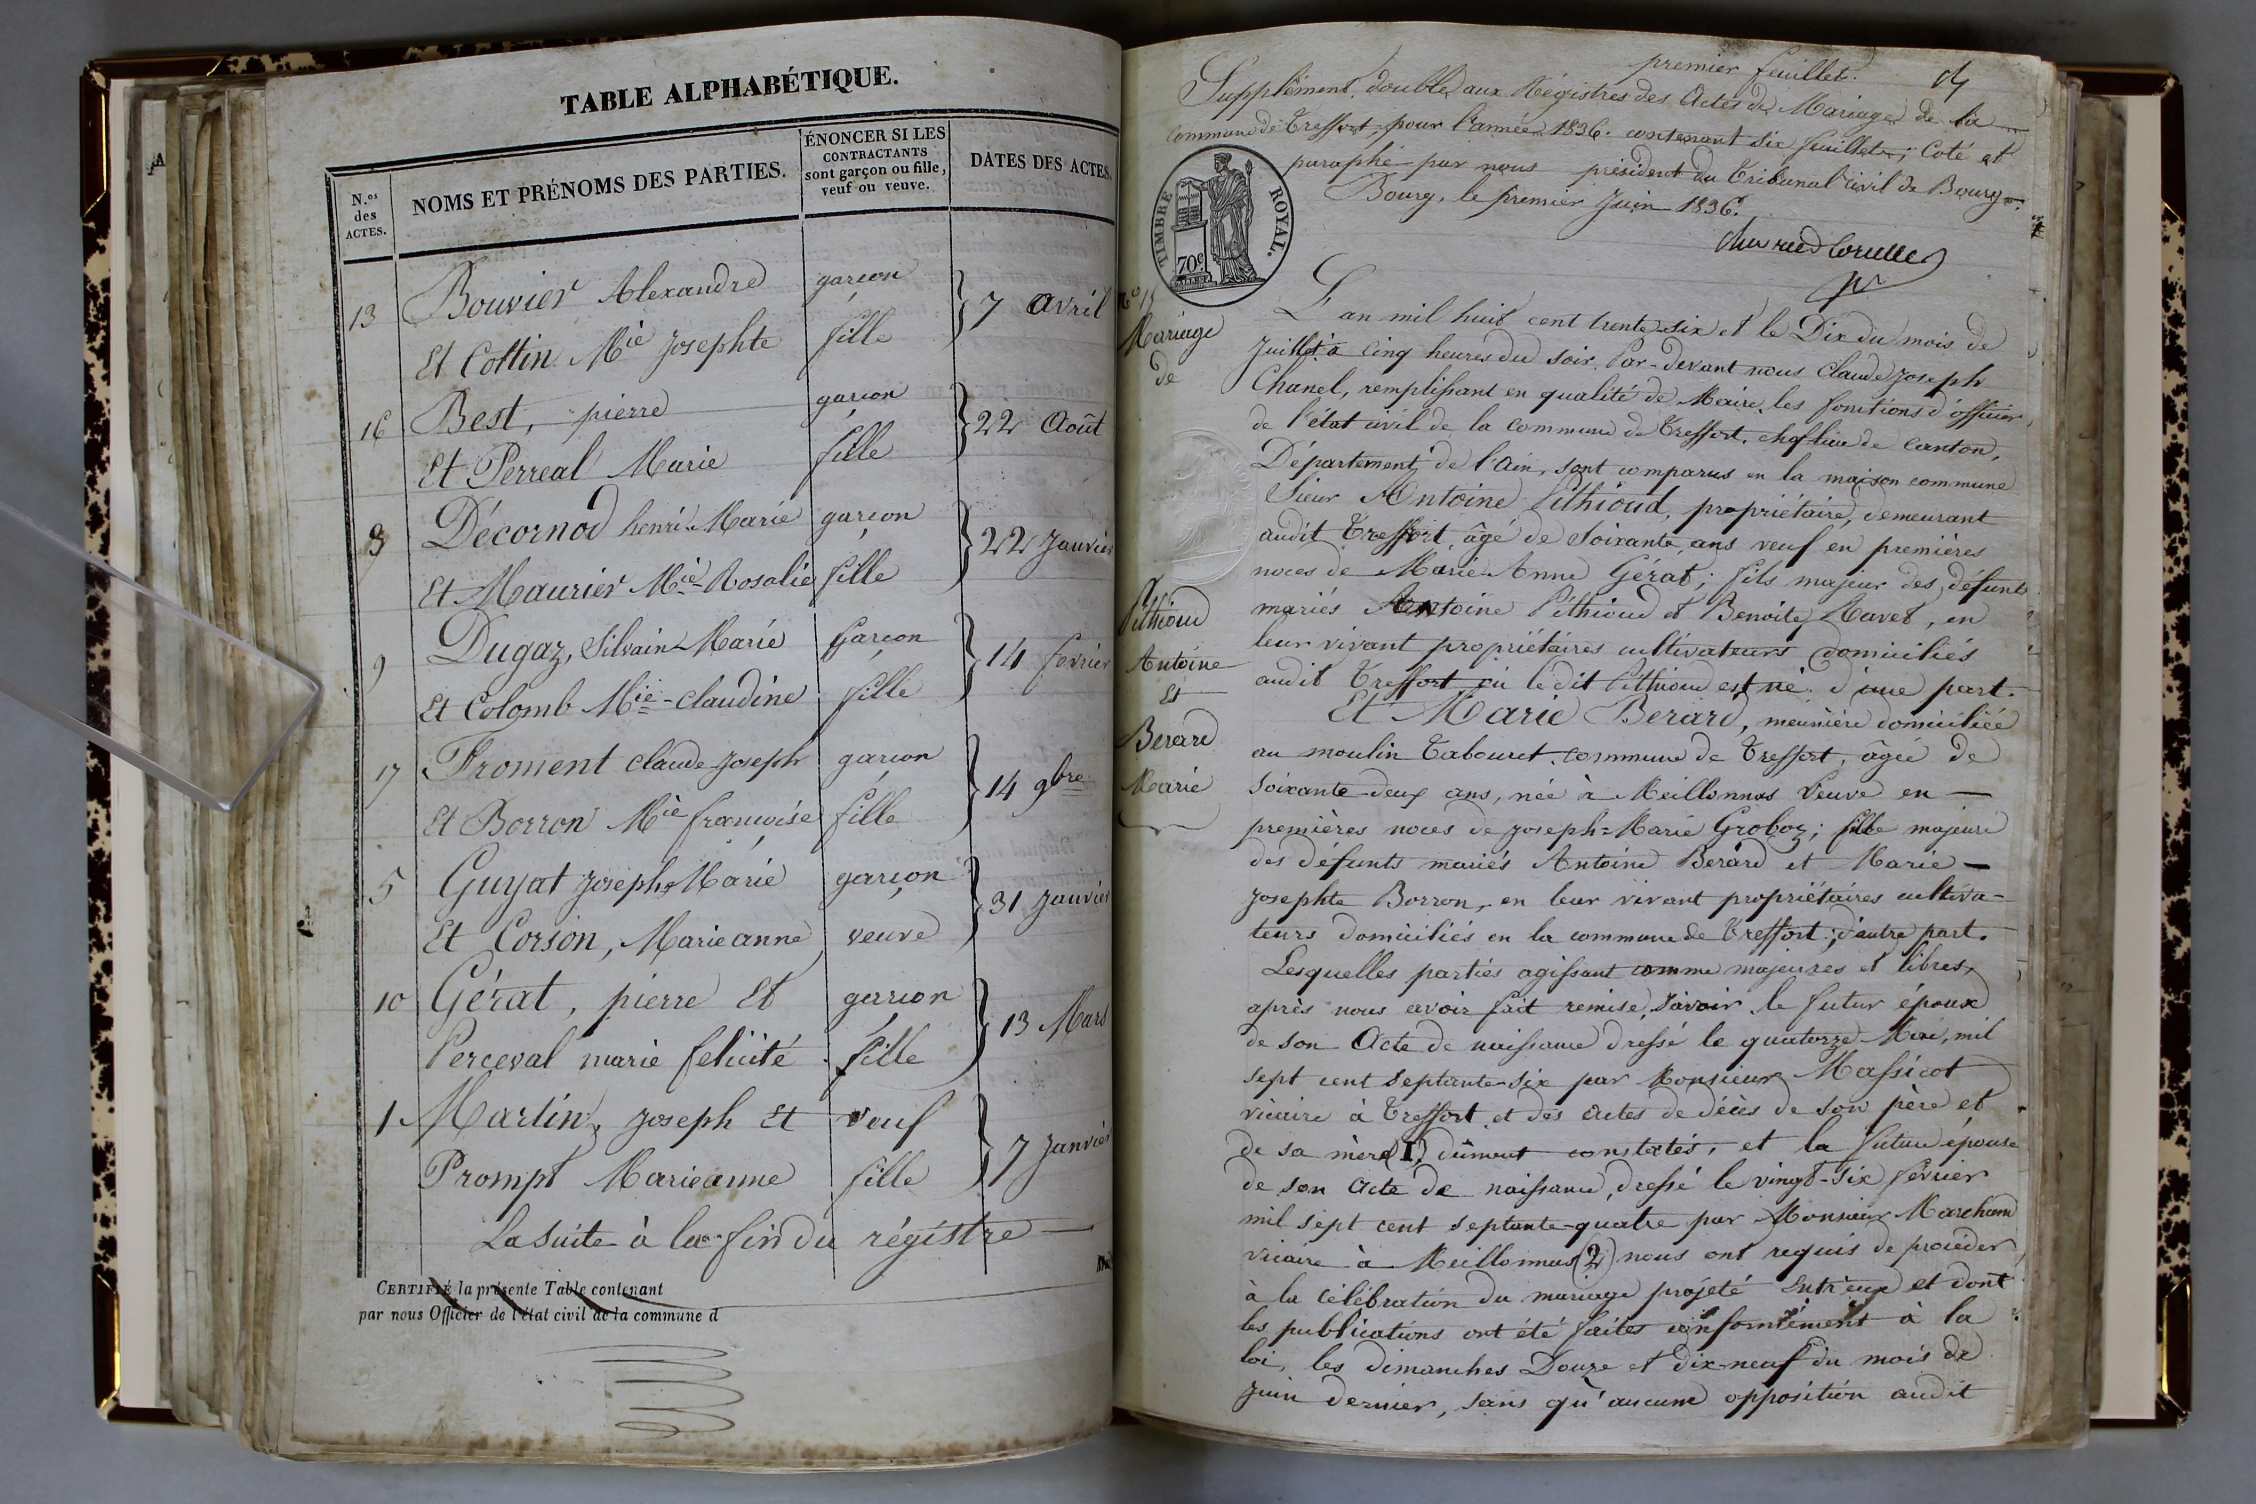 TABLE ALPHABÉTIQUE.
N.os des ACTES.
NOMS ET PRÉNOMS DES PARTIES.
ÉNONCER SI LES CONTRACTANTS sont garçon ou fille, veuf ou veuve.
DATES DES ACTES.
13 Bouvier Alexandre garçon
Et Cottin Mie Josephte fille
7 avril
16 Best, pierre garçon
Et Perreal Marie fille
22 Août
3 Décornod henri-Marie garçon
Et Maurier Mie-Rosalie fille
22 Janvier
9 Dugaz, Silvain-Marie Garçon
Et Colomb Mie-Claudine fille
14 fevrier
17 Froment claude-Joseph garçon
Et Borron Mie françoise fille
14 9bre
5 Guyat Joseph-Marie garçon
Et Corson, Marie anne veuve
31 Janvier
10 Gérat, pierre Et garçon
Perceval marie felicité fille
13 Mars
1 Martin, Joseph Et veuf
Prompt Marieanne fille
7 Janvier
La suite à la fin du régistre
CERTIFIÉ la présente Table contenant
par nous Officier de l'état civil de la commune d
premier feuillet.
Supplément double aux Régistres des Actes de Mariage de la
commune de Treffort, pour l'année 1836. contenant six feuillets; Coté et
paraphé par nous président du Tribunal Civil de Bourg.
Bourg, le premier Juin 1836.
TIMBRE ROYAL.
70c
Mariage
de
Pithioud
Antoine
Et
Berard
Marie
L'an mil huit cent trente-six et le Dix du mois de
Juillet à cinq heures du soir. Par-devant nous Claude Joseph
Chanel, remplissant en qualité de Maire les fonctions d'officier
de l'état civil de la commune de Treffort, chef-lieu de canton,
Département de l'ain, sont comparus en la maison commune
Sieur Antoine Pithioud, propriétaire, demeurant
audit Treffort, âgé de Soixante ans veuf en premières
noces de Marie-Anne Gérat; fils majeur des défunts
mariés Antoine Pithioud et Benoite Ravet, en
leur vivant propriétaires cultivateurs domiciliés
audit Treffort où ledit Pithioud est né. d'une part.
Et Marie Berard, meunière domiciliée
au moulin Tabouret, commune de Treffort, âgée de
Soixante-deux ans, née à Meillonnas Veuve en
premières noces de Joseph-Marie Groboz; fille majeure
des défunts mariés Antoine Berard et Marie-
Josephte Borron, en leur vivant propriétaires cultiva-
teurs domiciliés en la commune de Treffort; d'autre part.
Lesquelles parties agissant comme majeures et libres,
après nous avoir fait remise, savoir le futur époux
de son Acte de naissance dressé le quatorze Mai, mil
sept cent septante-six par Monsieur Massicot
vicaire à Treffort et des actes de décès de son père et
de sa mère (1) dûment constatés; et la future épouse
de son acte de naissance, dressé le vingt-six février
mil sept cent septante-quatre par Monsieur Marchand
vicaire à Meillonnas (2) nous ont requis de procéder
à la célébration du mariage projeté entr'eux et dont
les publications ont été faites conformément à la
loi, les dimanches Douze et dix-neuf du mois de
Juin dernier, sans qu'aucune opposition audit